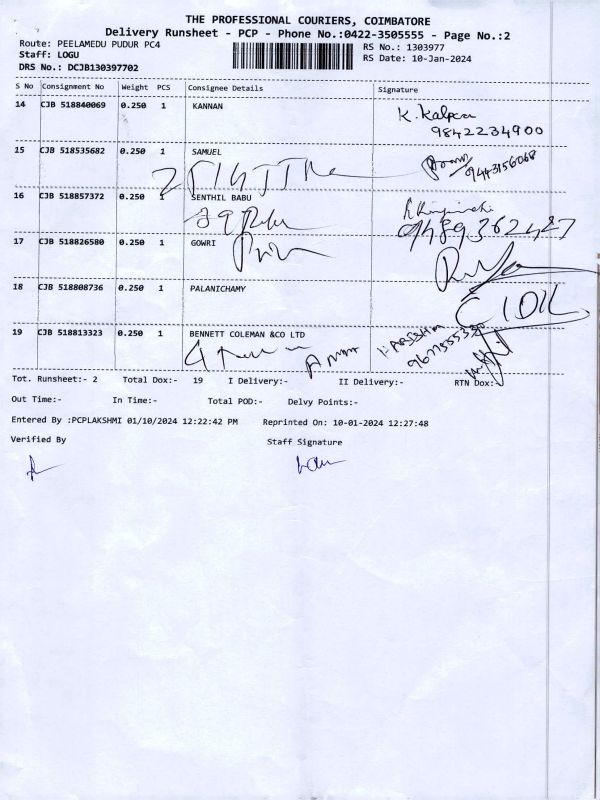 THE PROFESSIONAL COURIERS, COIMBATORE
Delivery Runsheet - PCP - Phone No.:0422-3505555 - Page No.:2
Route: PEELAMEDU PUDUR PC4
RS No.: 1303977
Staff: LOGU
RS Date: 10-Jan-2024
DRS No.: DCJB130397702
S No Consignment No Weight PCS Consignee Details Signature
14 CJB 518840069 0.250 1 KANNAN
K. Kalpana
9842234900
15 CJB 518535682 0.250 1 SAMUEL
9443156068
16 CJB 518857372 0.250 1 SENTHIL BABU
17 CJB 518826580 0.250 1 GOWRI
18 CJB 518808736 0.250 1 PALANICHAMY
19 CJB 518813323 0.250 1 BENNETT COLEMAN &CO LTD
Tot. Runsheet:- 2 Total Dox:- 19 I Delivery:- II Delivery:- RTN Dox:-
Out Time:- In Time:- Total POD:- Delvy Points:-
Entered By :PCPLAKSHMI 01/10/2024 12:22:42 PM Reprinted On: 10-01-2024 12:27:48
Verified By Staff Signature